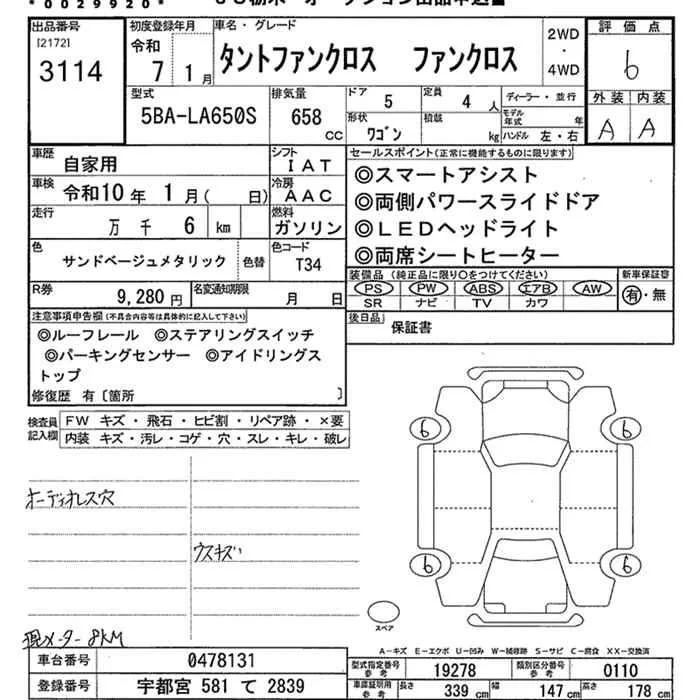 *0029920*
出品番号
[2172]
3114
初度登録年月
令和
7年 1月
車名・グレード
タントファンクロス ファンクロス
2WD
・
4WD
評価点
6
外装 内装
A A
型式
5BA-LA650S
排気量
658
CC
ドア
5
定員
4人
形状
ワゴン
積載
kg
ディーラー・並行
モデル年式 年
ハンドル 左・右
車歴
自家用
シフト
IAT
車検
令和10年 1月( 日)
冷房
AAC
走行
万 千 6 km
燃料
ガソリン
色
サンドベージュメタリック
色替
色コード
T34
R券
9,280円
名変通知期限
月 日
セールスポイント(正常に機能するものに限ります)
◎スマートアシスト
◎両側パワースライドドア
◎LEDヘッドライト
◎両席シートヒーター
装備品(純正品に限り○をつけてください)
PS PW ABS エアB AW
SR ナビ TV カワ
新車保証書
有・無
後日品
保証書
注意事項申告欄(不具合内容等は具体的に記入して下さい)
◎ルーフレール ◎ステアリングスイッチ
◎パーキングセンサー ◎アイドリングス
トップ
修復歴 有〔箇所 〕
検査員記入欄
FW キズ・飛石・ヒビ割・リペア跡・×要
内装 キズ・汚レ・コゲ・穴・スレ・キレ・破レ
オーディオレス穴
ウスキズ
現メーター 8KM
6 6
6 6
スペア
A-キズ E-エクボ U-凹み W-補修跡 S-サビ C-腐食 XX-交換済
車台番号
0478131
登録番号
宇都宮 581 て 2839
型式指定番号
参考
19278
類別区分番号
参考
0110
車庫証明用
参考
長さ 339 cm
幅 147 cm
高さ 178 cm